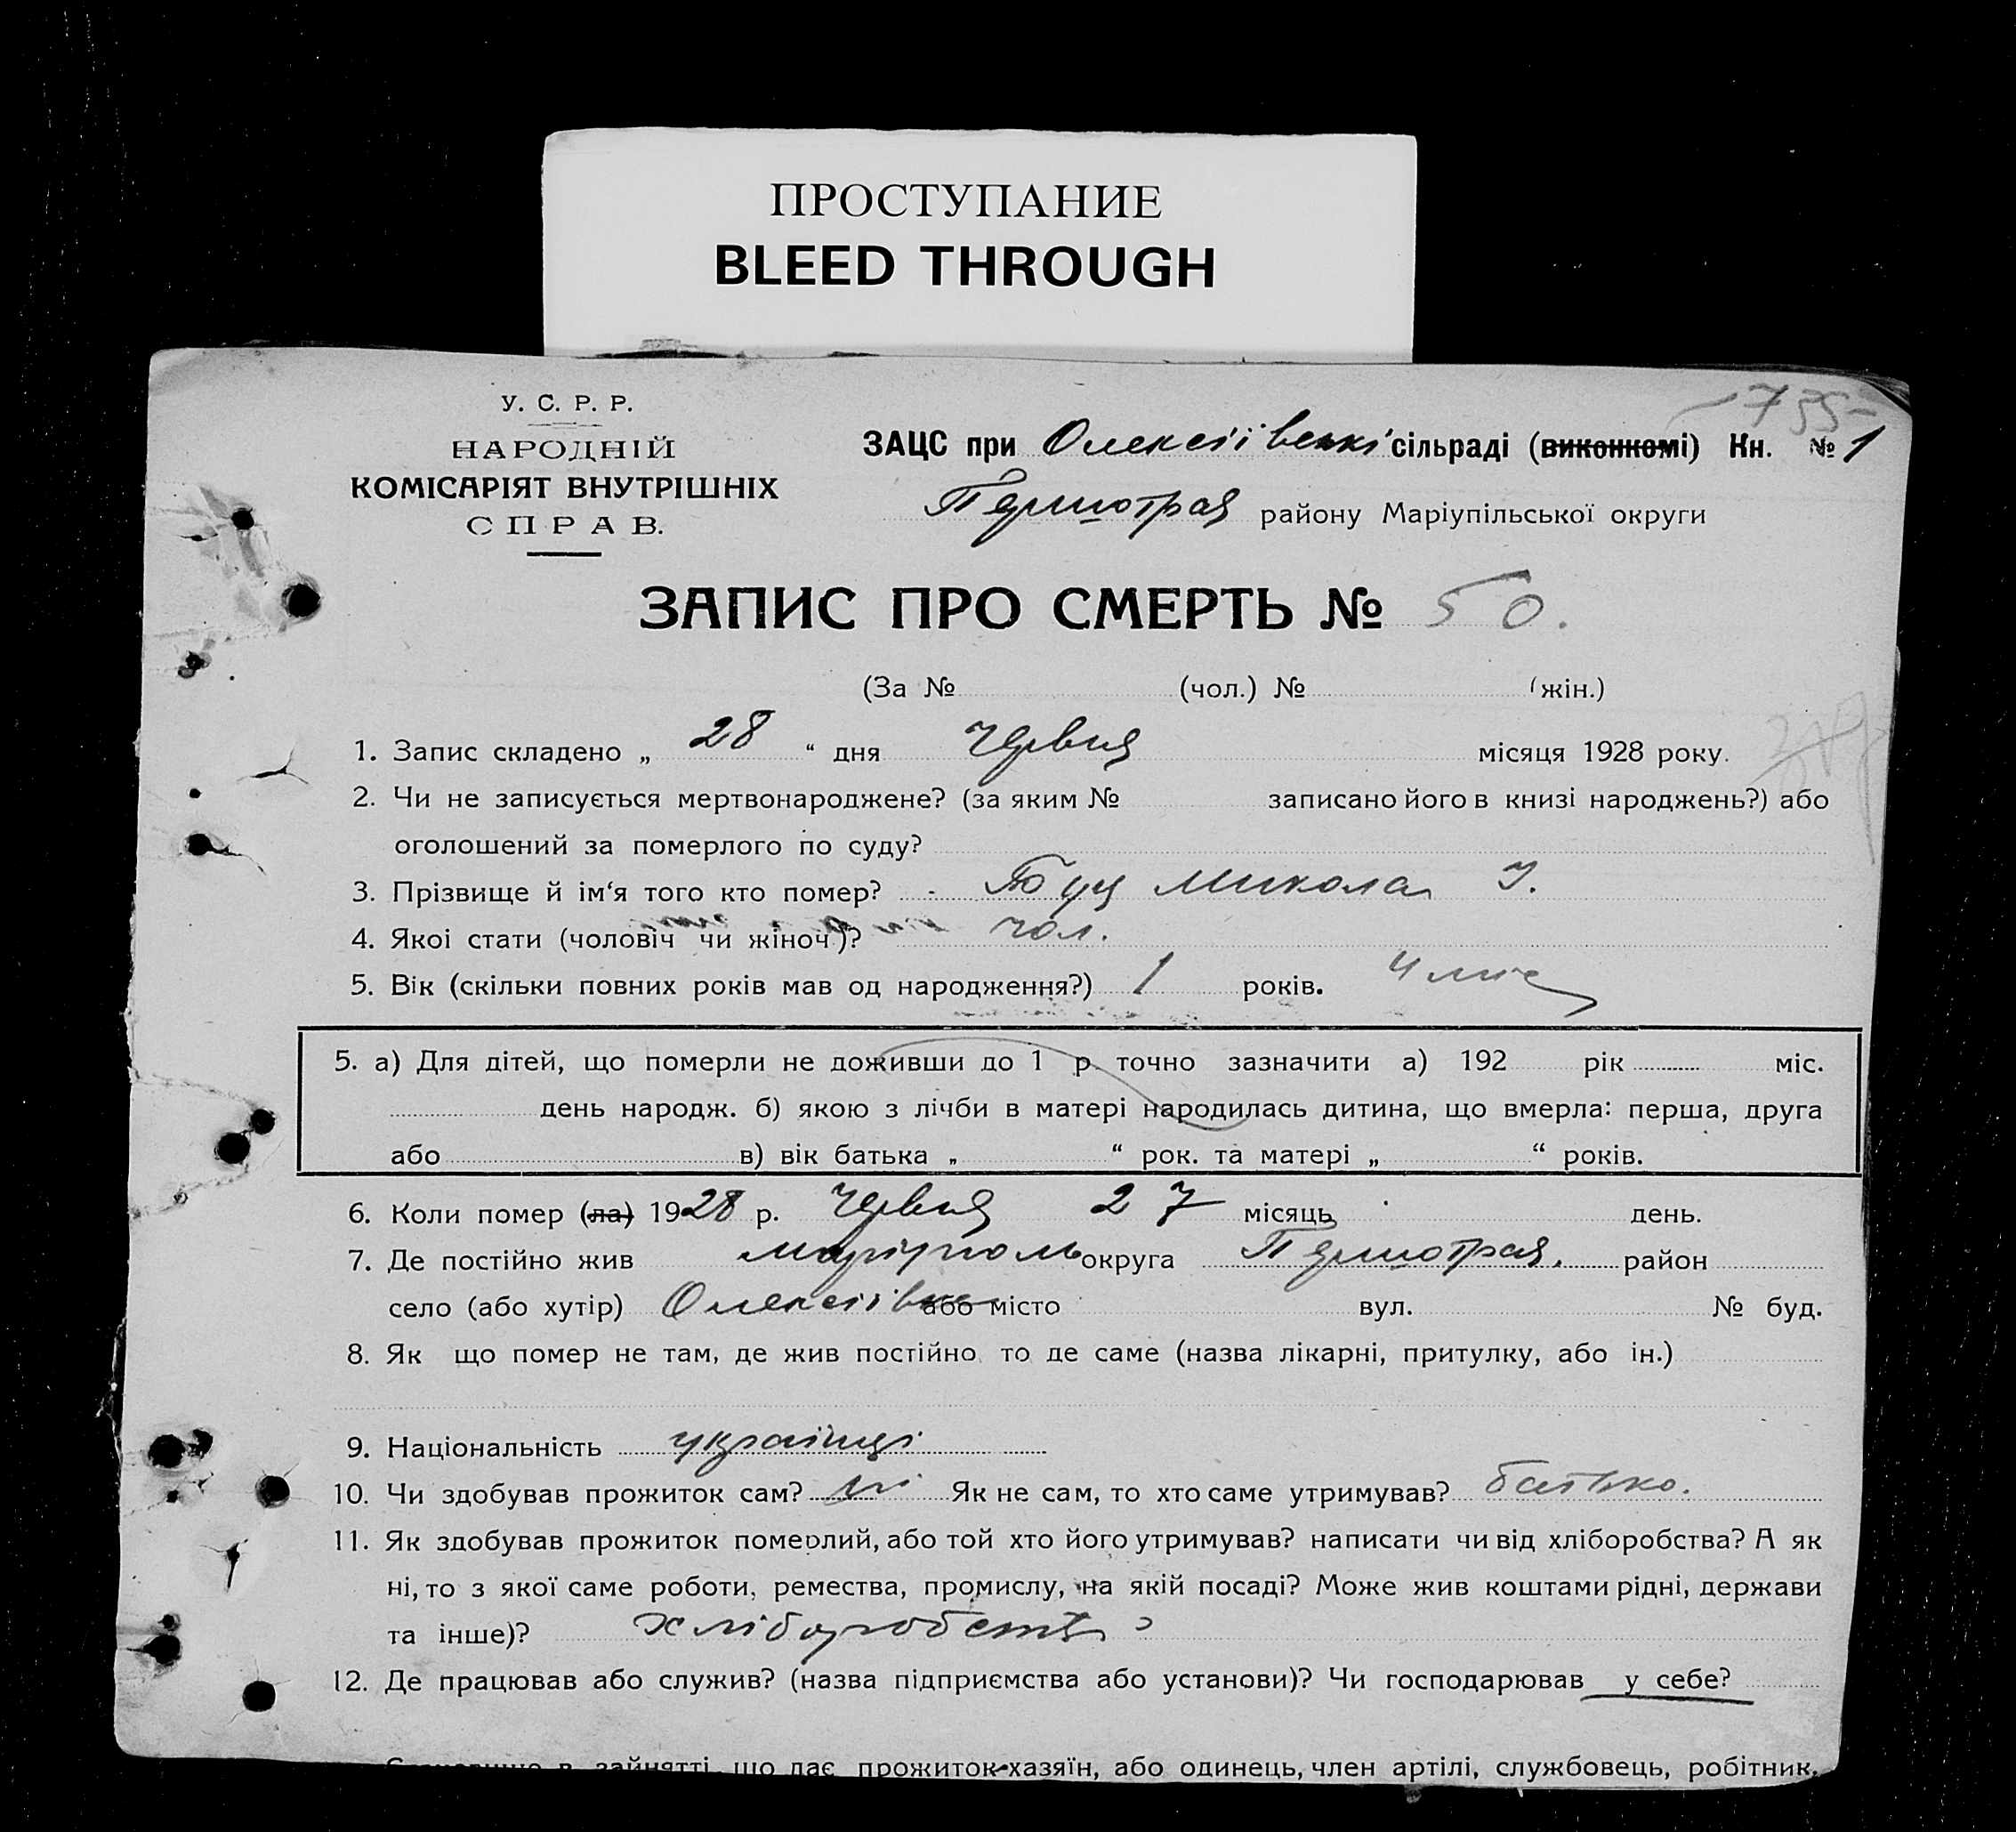 ПРОСТУПАНИЕ
BLEED THROUGH
735
У. С. Р. Р.
НАРОДНІЙ
КОМІСАРІЯТ ВНУТРІШНІХ
СПРАВ.
ЗАЦС при Олексіївські сільраді (виконкомі) Кн. № 1
Першотрав району Маріупільської округи
ЗАПИС ПРО СМЕРТЬ № 50.
(За № (чол.) № (жін.)
1. Запис складено „ 28 “ дня червня місяця 1928 року.
2. Чи не записується мертвонароджене? (за яким № записано його в книзі народжень?) або
оголошений за померлого по суду?
3. Прізвище й ім‘я того кто помер? Микола І.
4. Якої стати (чоловіч чи жіноч)? чол.
5. Вік (скільки повних років мав од народження?) 1 років.
5. а) Для дітей, що померли не доживши до 1 р. точно зазначити а) 192 рік міс.
день народж. б) якою з лічби в матері народилась дитина, що вмерла: перша, друга
або в) вік батька „ “ рок. та матері „ “ років.
6. Коли помер (ла) 1928 р. червня 27 місяць день.
7. Де постійно жив Маріуполь округа Першотрав. район
село (або хутір) Олексіївка або місто вул. № буд.
8. Як що помер не там, де жив постійно то де саме (назва лікарні, притулку, або ін.)
9. Національність українці
10. Чи здобував прожиток сам? ні Як не сам, то хто саме утримував? батько.
11. Як здобував прожиток померлий, або той хто його утримував? написати чи від хліборобства? А як
ні, то з якої саме роботи, ремества, промислу, на якій посаді? Може жив коштами рідні, держави
та інше)? хліборобство
12. Де працював або служив? (назва підприємства або установи)? Чи господарював у себе?
в зайнятті, що дає прожиток-хазяїн, або одинець, член артілі, службовець, робітник,